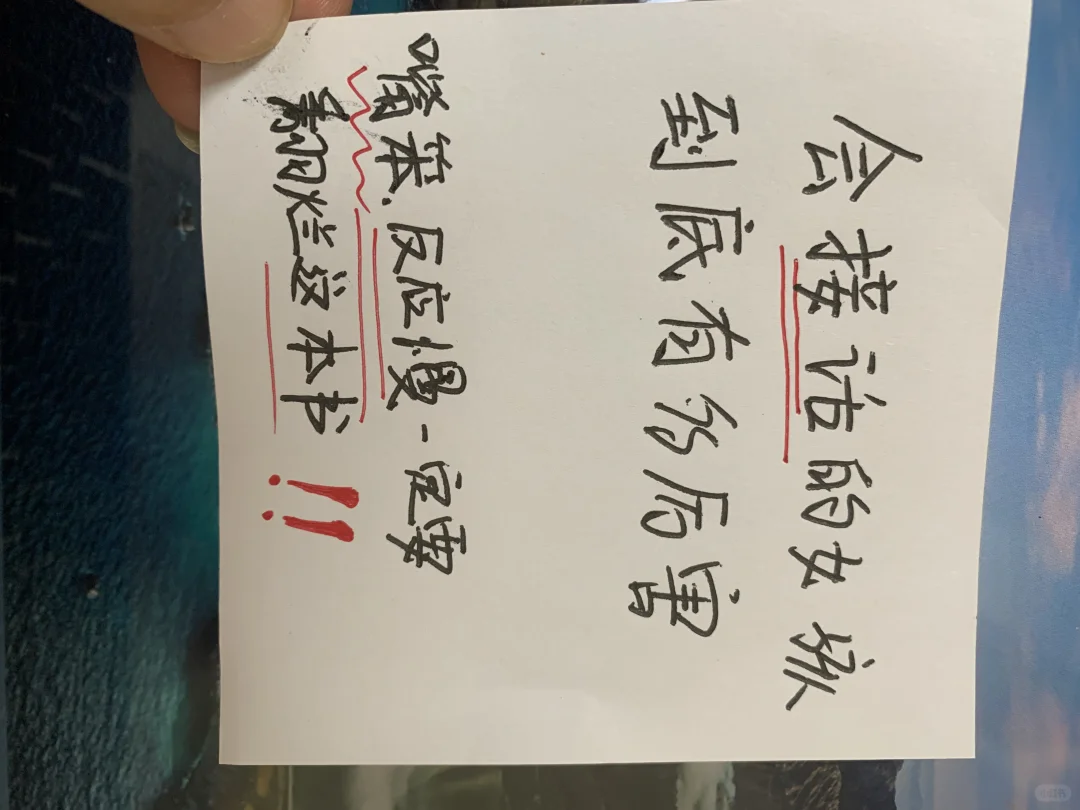 会接话的女孩
到底有多厉害
嘴笨、反应慢一定要
翻烂这本书!!